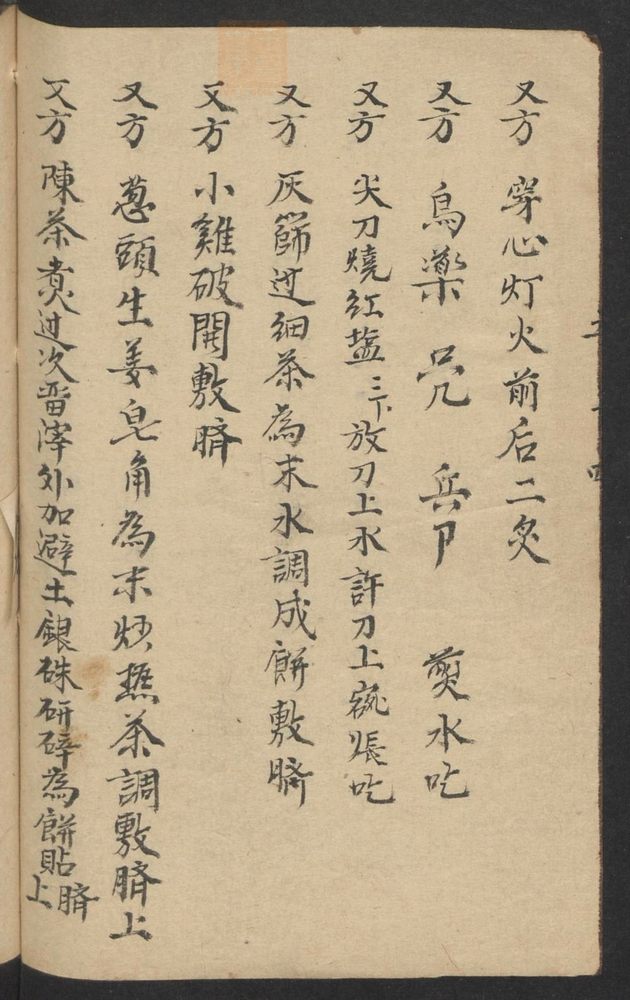 又方 穿心灯火前后二炙
又方 烏藥 兵 煎水吃
又方 尖刀燒紅盐三下放刀上水許刀上 吃
又方 灰篩过细茶為末水調成餅敷臍
又方 小雞破開敷臍
又方 葱頭生姜皂角為末炒 茶調敷臍上
又方 陳茶煮过次 滓外加避土銀硃研碎為餅貼臍上